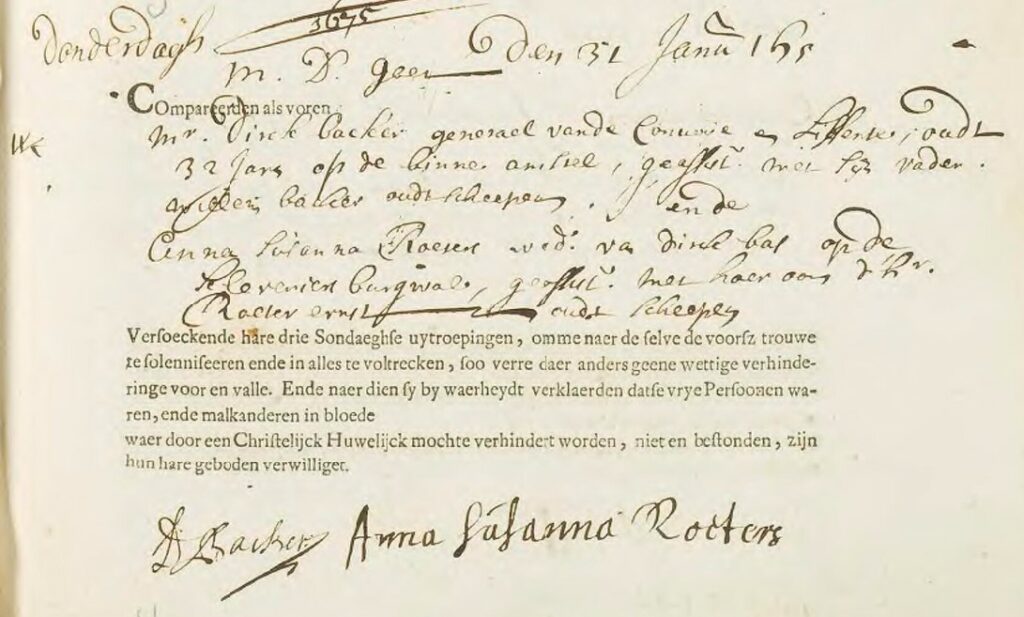 1675
Donderdagh
M. D. geer Den 31 Janu 167
COmpareerden als voren
Mr. Dirck backer generael vande Convoie e Lissenten, oudt
32 Jars op de binne amstel, geasst. met sijn vader.
willem backer oudt scheepen. ende
Anna susanna Roeters wed. va dirck bas op de
kleveniers burgwal, geasst. met haer oom d hr.
Roeter ernst oudt scheepen
Versoeckende hare drie Sondaeghse uytroepingen, omme naer de selve de voorsz trouwe
te solenniseeren ende in alles te voltrecken, soo verre daer anders geene wettige verhinde-
ringe voor en valle. Ende naer dien sy by waerheydt verklaerden datse vrye Persoonen wa-
ren, ende malkanderen in bloede
waer door een Christelijck Huwelijck mochte verhindert worden, niet en bestonden, zijn
hun hare geboden verwilliget.
D Backer Anna Susanna Roeters